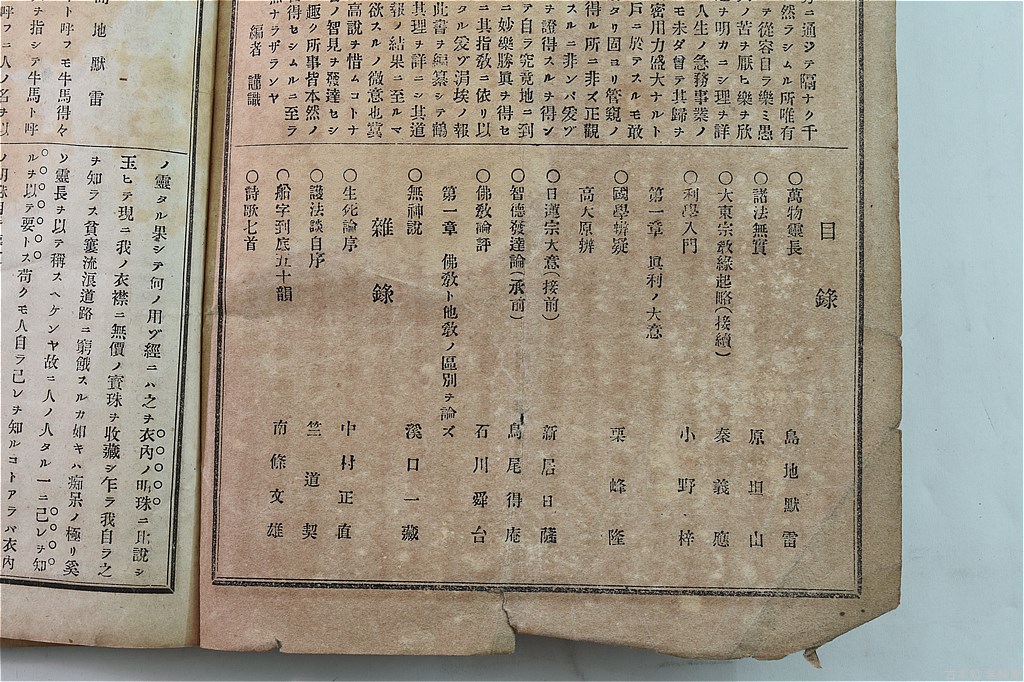 ニ通ジテ隔ナク千
然ラシムル所唯有
テ從容自ラ樂ミ愚
ノ苦ヲ厭ヒ樂ヲ欣
ヲ明カニシ理ヲ詳
人生ノ急務事業ノ
モ未ダ曾テ其歸ヲ
密用力盛大ナルト
戶ニ於テスルモ敢
タリ固ヨリ管窺ノ
得ル所ニ非ズ正觀
スルニ非ンバ爱ゾ
ヲ證得スルヲ得ン
テ自ラ究竟地ニ到
ニ妙樂勝眞ヲ得セ
ニ其指敎ニ依リ以
タル爱ゾ涓埃ノ報
此書ヲ編纂シテ
其理ヲ詳ニシ其道
報ノ結果ニ至ルマ
欲スルノ微意也冀
高說ヲ惜ムコトナ
ノ智見ヲ發達セシ
趣ク所事皆本然ノ
得セシムルニ至ラ
無ナラザランヤ
編者 謹識
目錄
〇萬物靈長 島地默雷
〇諸法無實 原坦山
〇大東宗敎緣起略(接續) 秦義應
〇利學入門 小野梓
第一章 眞利ノ大意
〇國學辨疑 栗峰隆
高天原辨
〇日蓮宗大意(接前) 新居日薩
〇智德發達論(承前) 鳥尾得庵
〇佛敎論評 石川舜台
第一章 佛敎ト他敎ノ區別ヲ論ズ
〇無神說 溪口一藏
雜錄
〇生死論序 中村正直
〇護法談自序 竺道契
〇船字到底五十韻 南條文雄
〇詩歌七首
地默雷
ト呼フモ牛馬得々
ヲ指シテ牛馬ト呼
呼フニ人ノ名ヲ以
ノ靈タル果シテ何ノ用ゾ經ニハ之ヲ衣內ノ明珠ニ比說シ
玉ヒテ現ニ我ノ衣襟ニ無價ノ寶珠ヲ收藏シ乍ラ我自ラ之
ヲ知ラス貧窶流浪道路ニ窮餓スルカ如キハ痴呆ノ極リ奚
ソ靈長ヲ以テ稱スヘケンヤ故ニ人ノ人タル一ニ己レヲ知
ルヲ以テ要トス苟クモ人自ラ己レヲ知ルコトアラバ衣內